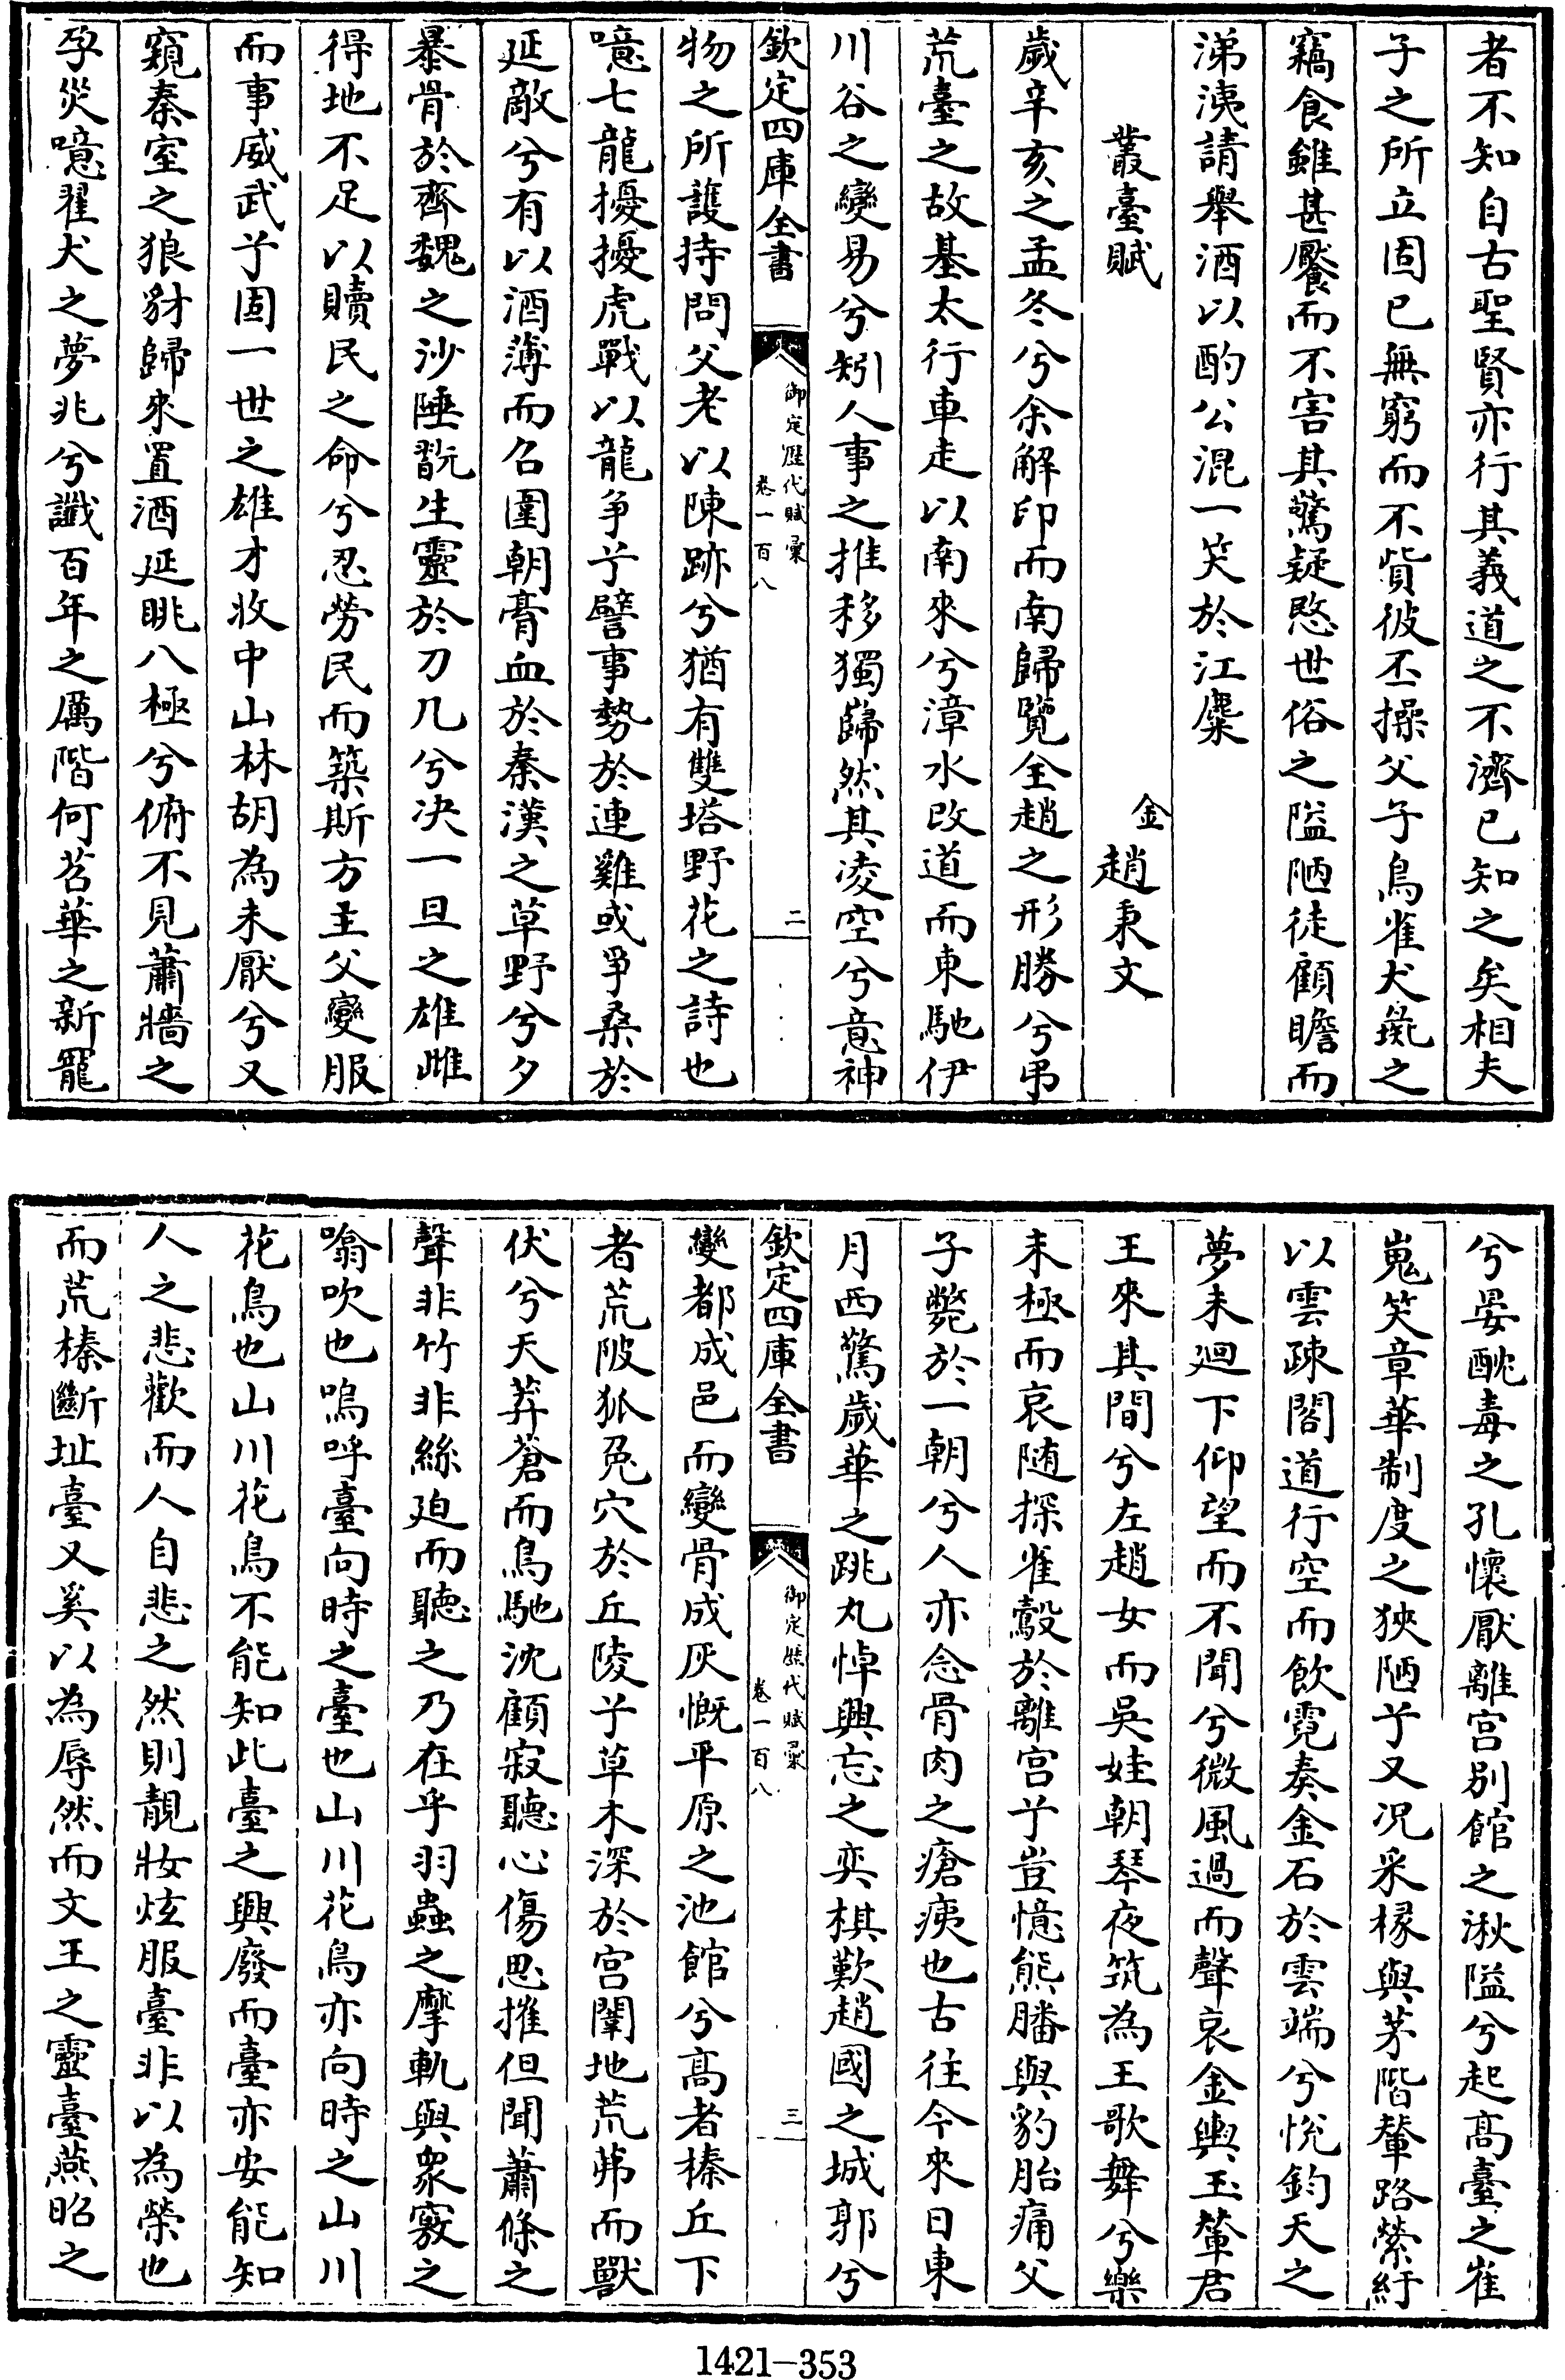 者不知自古聖賢亦行其義道之不濟已知之矣相夫
子之所立固已無窮而不貲彼丕操父子鳥雀犬彘之
竊食雖甚饜而不害其驚疑愍世俗之隘陋徒顧瞻而
涕洟請舉酒以酌公混一笑於江麋
叢臺賦
金 趙秉文
歲辛亥之孟冬兮余解印而南歸覽全趙之形勝兮弔
荒臺之故基太行車走以南來兮漳水改道而東馳伊
川谷之變易兮矧人事之推移獨巋然其凌空兮意神
欽定四庫全書
御定歷代賦彙
卷一百八
二
物之所護持問父老以陳跡兮猶有雙塔野花之詩也
噫七龍擾擾虎戰以龍爭兮譬事勢於連雞或爭桑於
延敵兮有以酒薄而召圍朝膏血於秦漢之草野兮夕
暴骨於齊魏之沙陲翫生靈於刀几兮决一旦之雄雌
得地不足以贖民之命兮忍勞民而築斯方主父變服
而事威武兮固一世之雄才收中山林胡為未厭兮又
窺秦室之狼豺歸來置酒延眺八極兮俯不見蕭牆之
孕災噫翟犬之夢兆兮讖百年之厲階何苕華之新寵
兮晏酖毒之孔懷厭離宫别館之湫隘兮起髙臺之崔
嵬笑章華制度之狹陋兮又况采椽與茅階輦路縈紆
以雲踈閣道行空而飲霓奏金石於雲端兮恱鈞天之
夢未迴下仰望而不聞兮微風過而聲哀金輿玉輦君
王來其間兮左趙女而吳娃朝琴夜筑為王歌舞兮樂
未極而哀随探雀鷇於離宫兮豈憶熊膰與豹胎痛父
子斃於一朝兮人亦念骨肉之瘡痍也古往今來日東
月西驚歲華之跳丸悼興忘之奕棋歎趙國之城郭兮
欽定四庫全書
御定歷代賦彙
卷一百八
三
變都成邑而變骨成灰慨平原之池館兮髙者榛丘下
者荒陂狐兎穴於丘陵兮草木深於宫闈地荒茀而獸
伏兮天莽蒼而鳥馳沈顧寂聽心傷思摧但聞蕭條之
聲非竹非絲廹而聽之乃在乎羽蟲之摩軋與衆竅之
噏吹也嗚呼臺向時之臺也山川花鳥亦向時之山川
花鳥也山川花鳥不能知此臺之興廢而臺亦安能知
人之悲歡而人自悲之然則靚妝炫服臺非以為榮也
而荒榛斷址臺又奚以為辱然而文王之靈臺燕昭之
1421-353